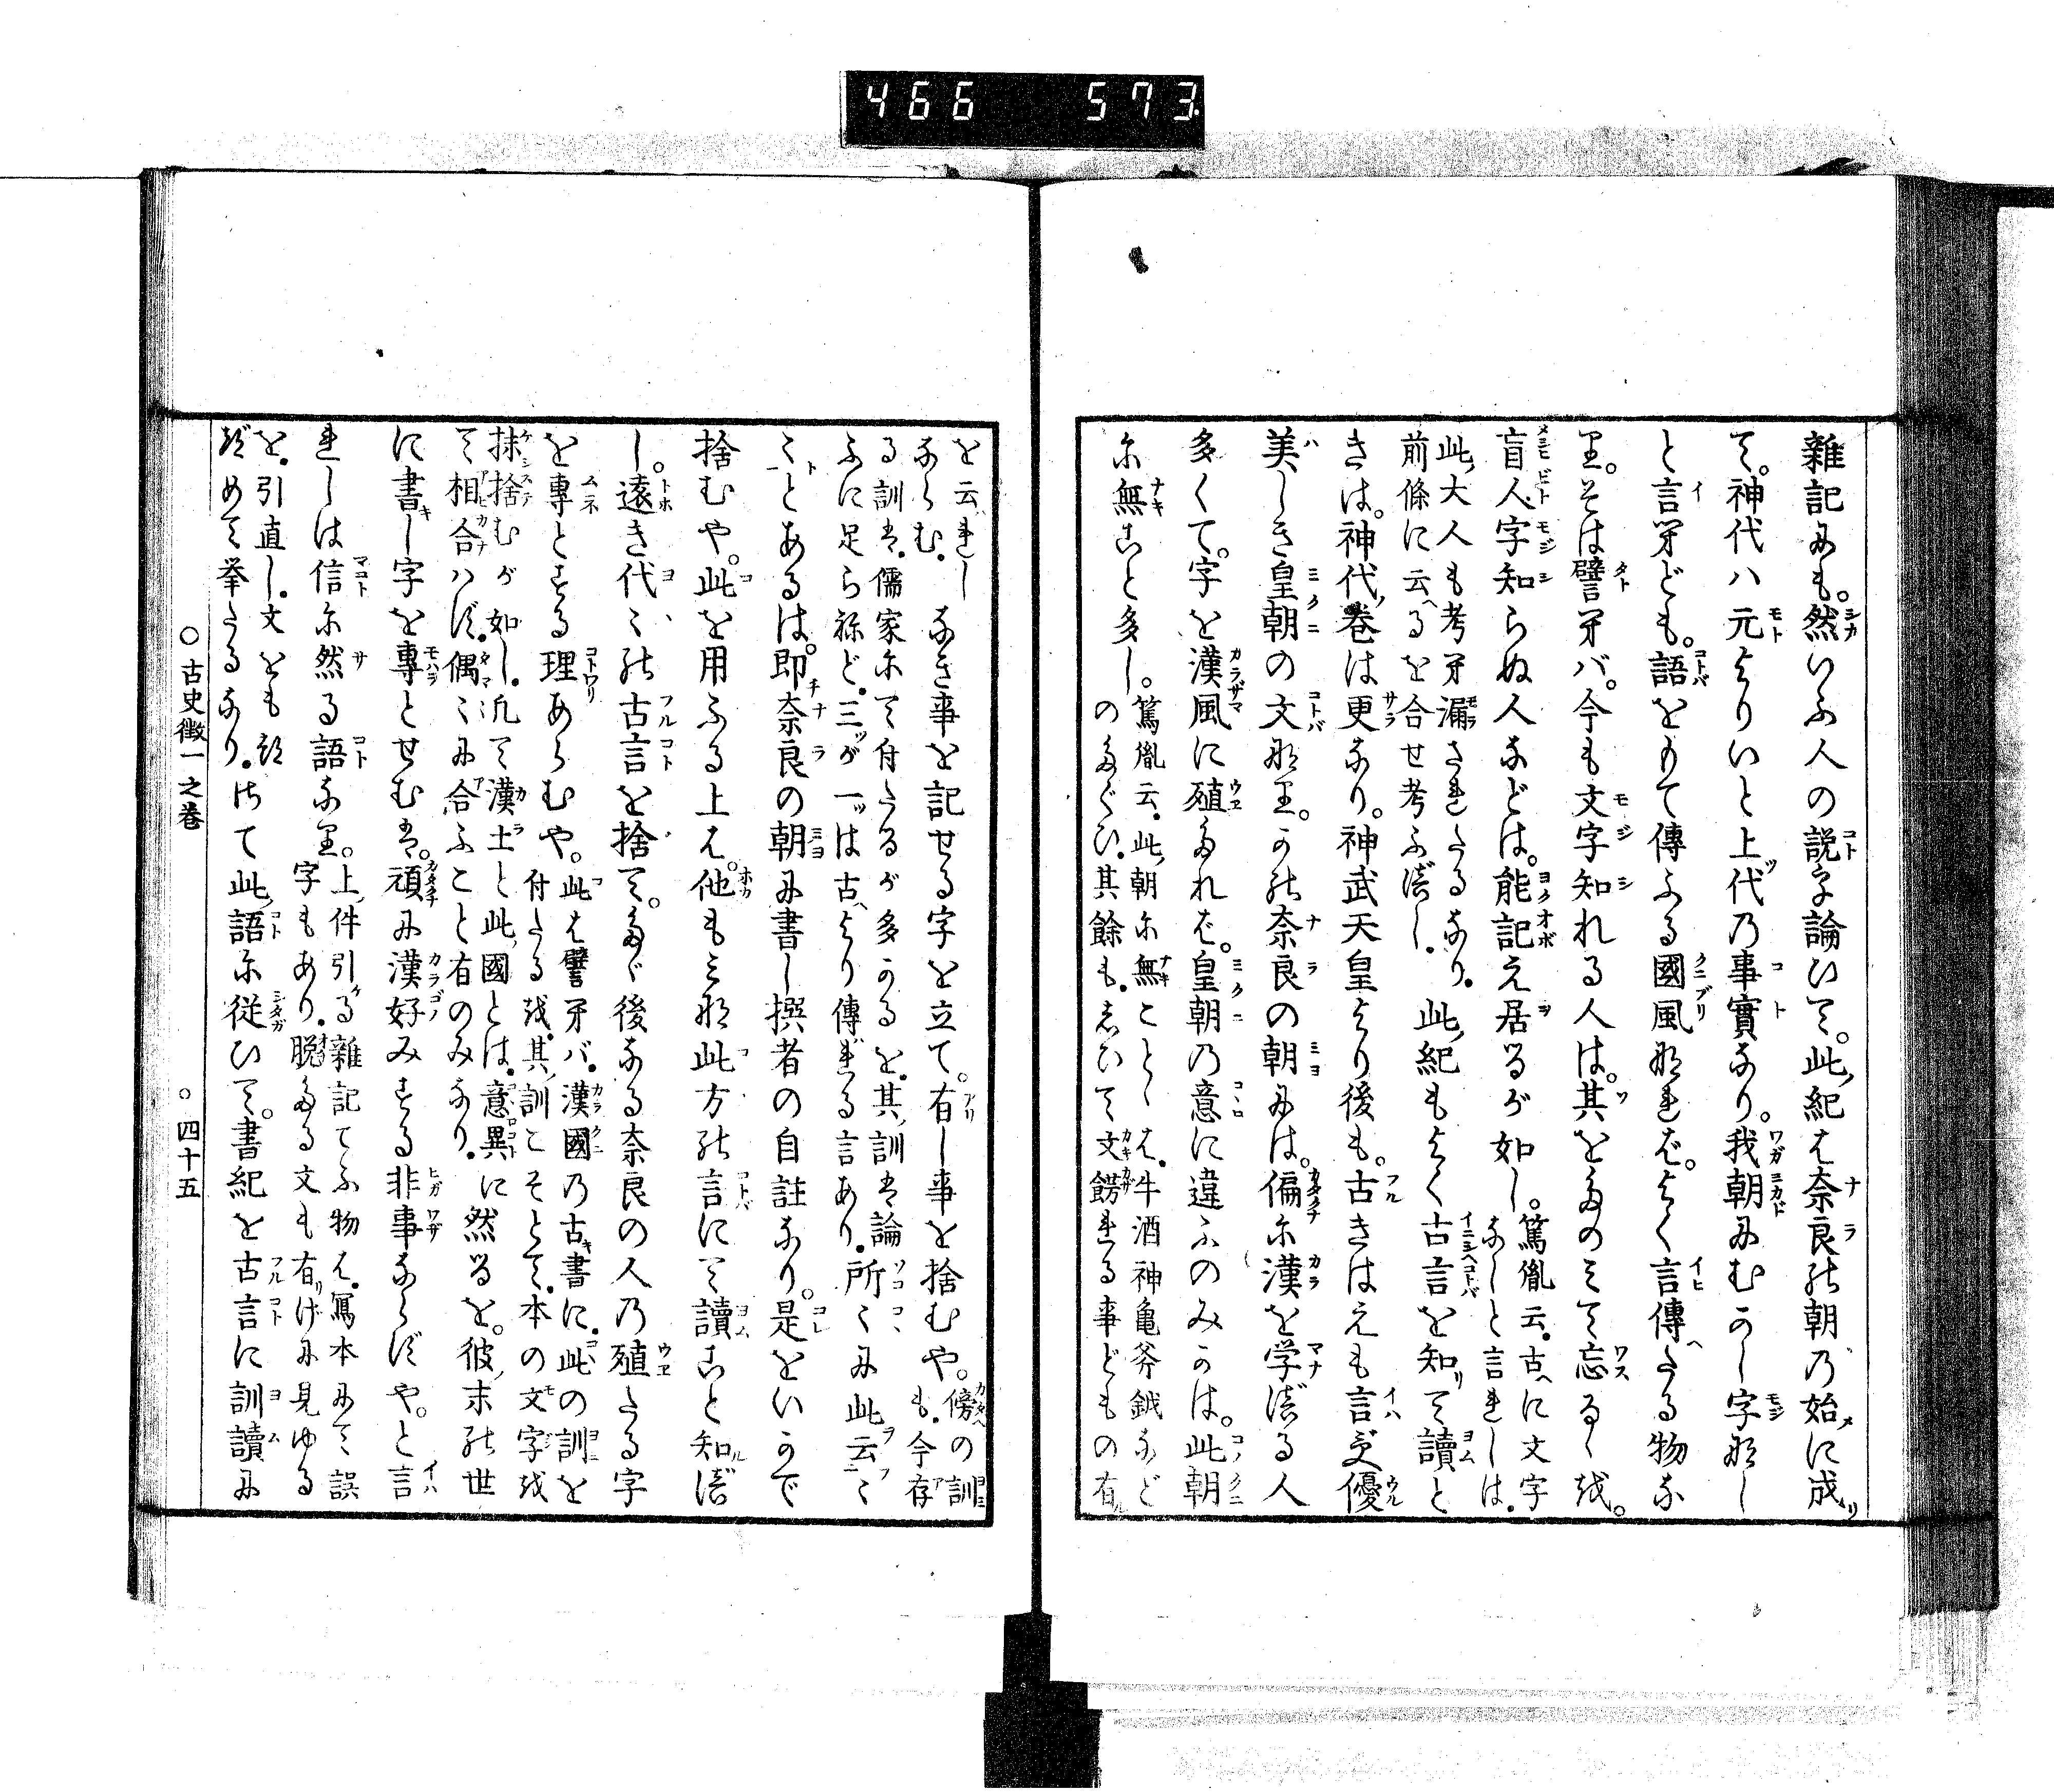 466 573
雜記にも。然いふ人の説を論ひて。此紀は奈良の朝の始に成
て。神代ハ元よりいと上代の事實なり。我朝にむかし字なし
と言へども。語をもて傳ふる國風なれば。よく言傳へたる物な
り。そは譬へバ。今も文字知れる人は。其をたのミて忘るゝを。
盲人字知らぬ人などは。能記え居るが如し。篤胤云。古へに文字
なしと言れしは。
此大人も考へ漏されたるなり。
前條に云へるを合せ考ふべし。此紀もよく古言を知りて讀と
きは。神代卷は更なり。神武天皇より後も。古きはえも言ハず優
美しき皇朝の文なり。かの奈良の朝には。偏に漢を学べる人
多くて。字を漢風に殖たれば。皇朝の意に違ふのみかは。此朝
に無きこと多し。篤胤云。此朝に無こと〻は。牛酒神亀斧鉞など
のたぐひ。其餘も。しひて文餝れる事どもの有
を云れし
ならむ。なき事を記せる字を立て。有し事を捨むや。傍の訓
も。今存
る訓は。儒家にて付たるが多かるを。其訓は論
ふに足らねど。三ッが一ッは古へより傳れる言あり。所〻に此云〻
〻とあるは。即奈良の朝に書し撰者の自註なり。是をいかで
捨むや。此を用ふる上は。他もミな此方の言にて讀ことと知べ
し。遠き代〻の古言を捨て。たゞ後なる奈良の人の殖たる字
を專とする理あらむや。此は譬へバ。漢國の古書に。此の訓を
付たるを。其訓こそとて。本の文字を
抹捨むが如し。凡て漢土と此國とは。意異に然るを。彼末の世
て相合ハず。偶〻に合ふこと有のみなり。
に書し字を專とせむは。頑に漢好みする非事ならずや。と言
れしは信に然る語なり。上件引る雜記てふ物は。寫本にて誤
字もあり。脱たる文も有げに見ゆる
を。引直し。文をも約
ずめて挙たるなり。はて此語に従ひて。書紀を古言に訓讀に
○古史徴一之卷 ○四十五